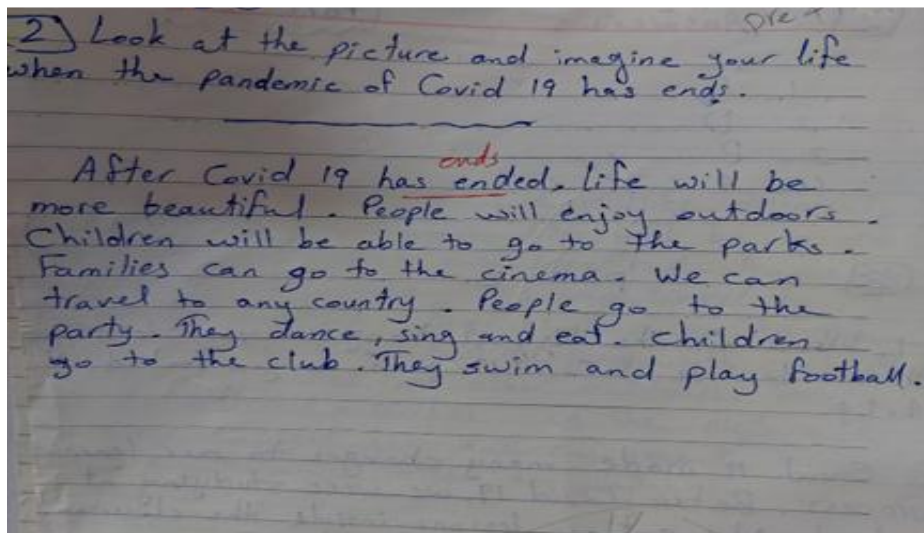 2) Look at the picture and imagine your life
when the pandemic of Covid 19 has ends.
ends
After Covid 19 has ended. life will be
more beautiful. People will enjoy outdoors.
Children will be able to go to the parks.
Families can go to the cinema. We can
travel to any country. People go to the
party. They dance, sing and eat. children
go to the club. They swim and play football.